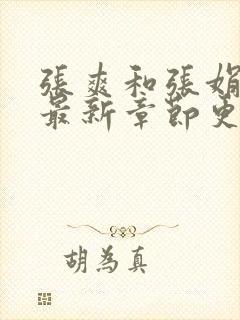 張爽和張娟
最新章節更
胡為真